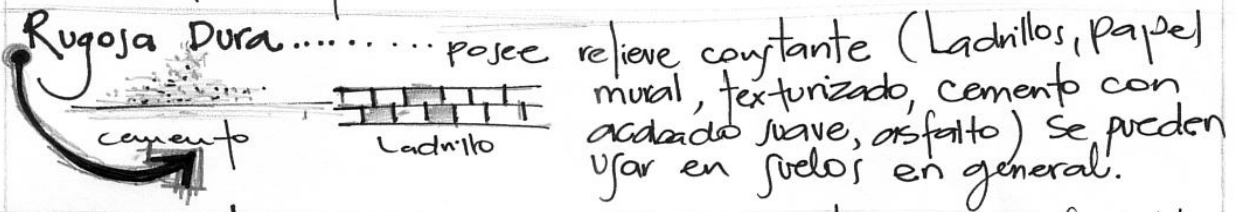 Rugosa Dura.......... posee relieve constante (Ladrillos, papel
mural, texturizado, cemento con
acabado suave, asfalto) se pueden
usar en suelos en general.
cemento
Ladrillo